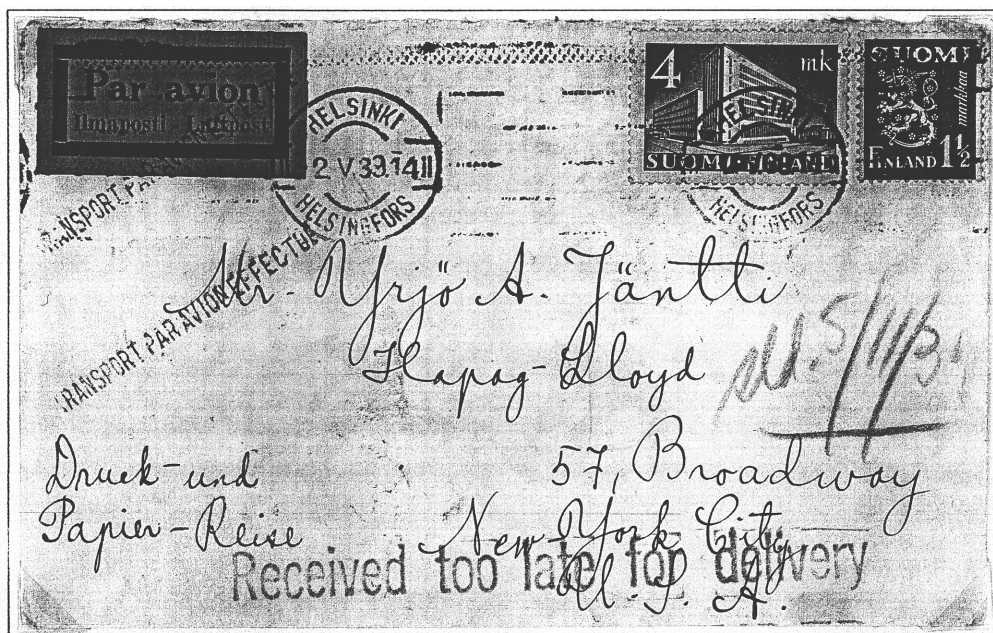 Par avion
Ilmaposti - Luftpost
HELSINKI
2.V.39.14
HELSINGFORS
4 mk
SUOMI-FINLAND
HELSINKI
HELSINGFORS
SUOMI
markkaa
FINLAND 1½
TRANSPORT PAR AVION
TRANSPORT PAR AVION EFFECTUE
Mr. Yrjö A. Jäntti
Hapag-Lloyd
57, Broadway
New-York City
U.S.A.
Druck-und
Papier-Reise
Received too late for delivery